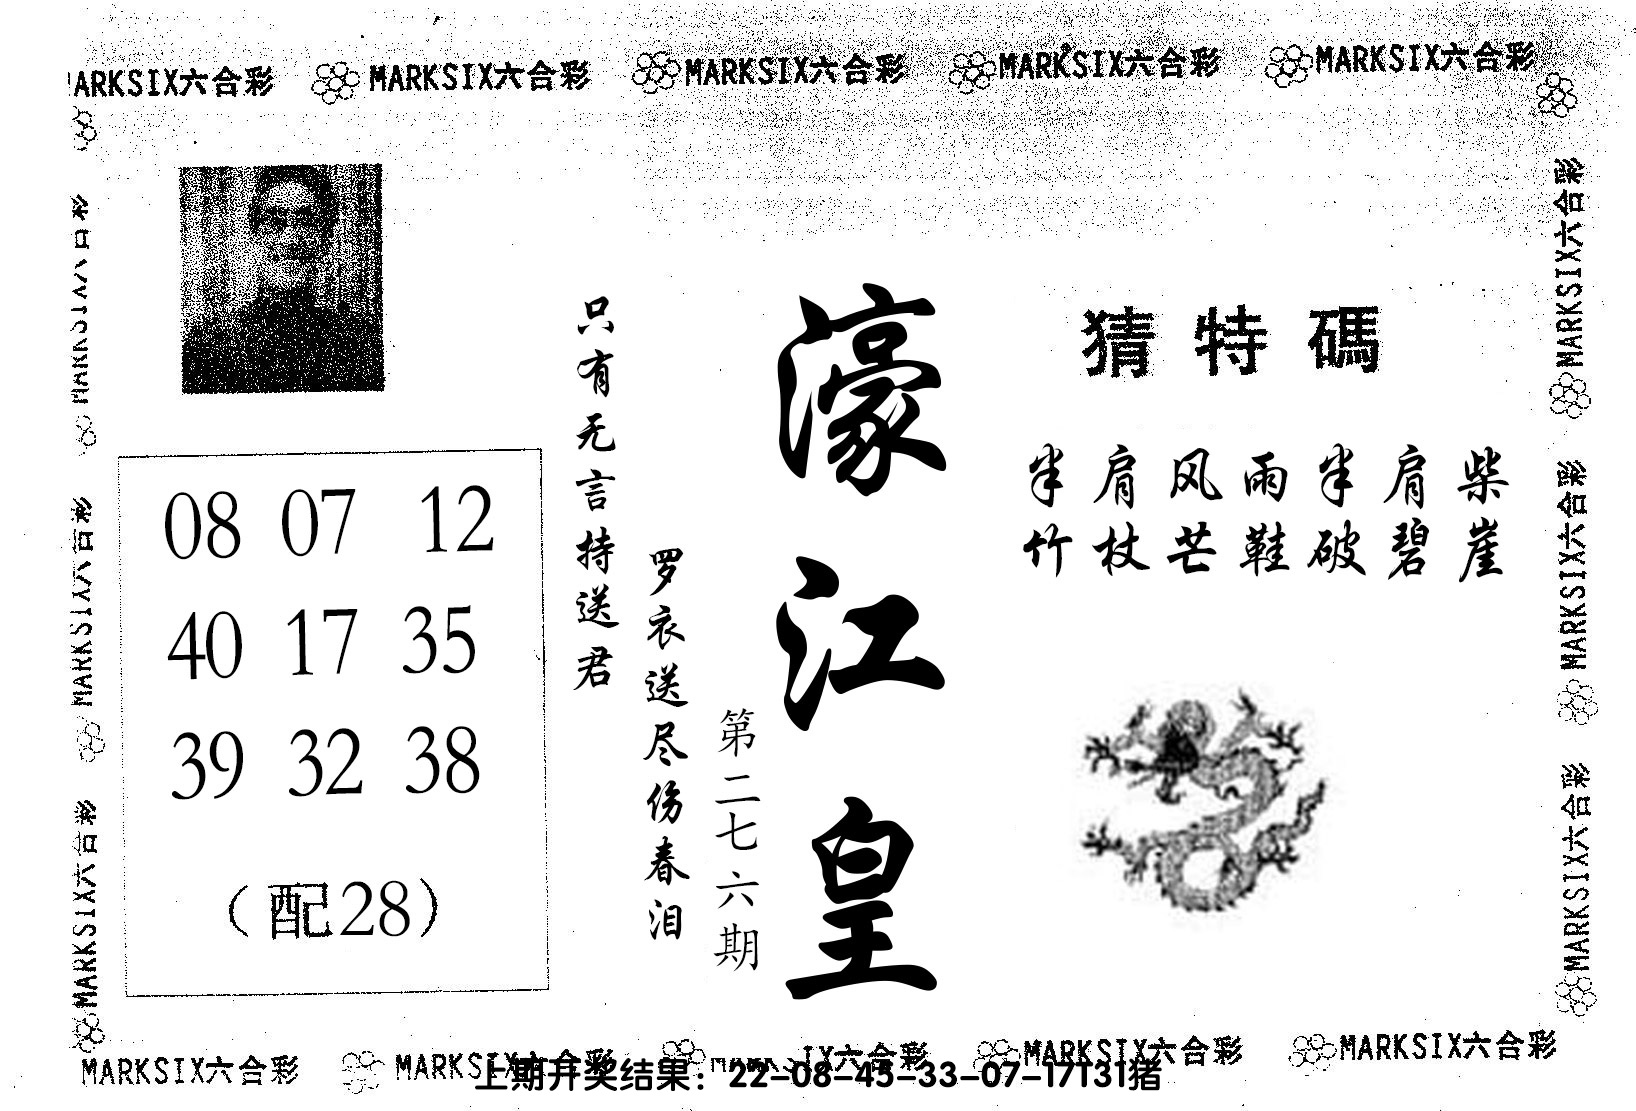 MARKSIX六合彩 MARKSIX六合彩 MARKSIX六合彩 MARKSIX六合彩 MARKSIX六合彩
猜特碼
半肩风雨半肩柴
竹杖芒鞋破碧崖
濠江皇
第二七六期
罗衣送尽伤春泪
只有无言持送君
08 07 12
40 17 35
39 32 38
（配28）
MARKSIX六合彩
MARKSIX六合彩
MARKSIX六合彩
MARKSIX六合彩
MARKSIX六合彩
MARKSIX六合彩
MARKSIX六合彩 MARKSIX六合彩 MARKSIX六合彩 MARKSIX六合彩
上期开奖结果：22-08-45-33-07-17T31猪